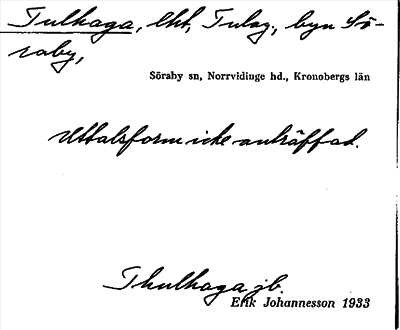 Tulhaga, lht, Tulag, byn Sö-
raby,
Söraby sn, Norrvidinge hd., Kronobergs län
Uttalsform icke anträffad.
Thulhaga jb.
Erik Johannesson 1933